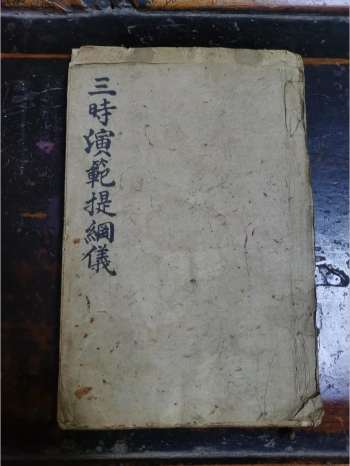 三時演範提綱儀